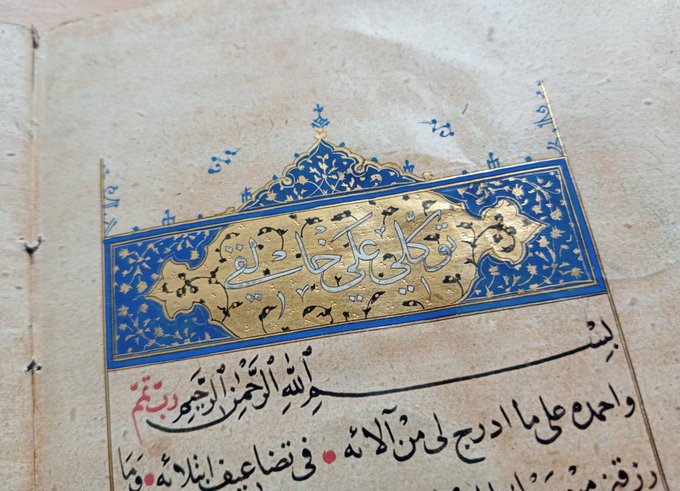 توكّلي على خالقي
بِسْمِ اللهِ الرَّحْمٰنِ الرَّحِيمِ ربّ تمّم
واحمده على ما ادرج لى من آلائه • فى تضاعيف ابتلائه • وما
رزقنى من